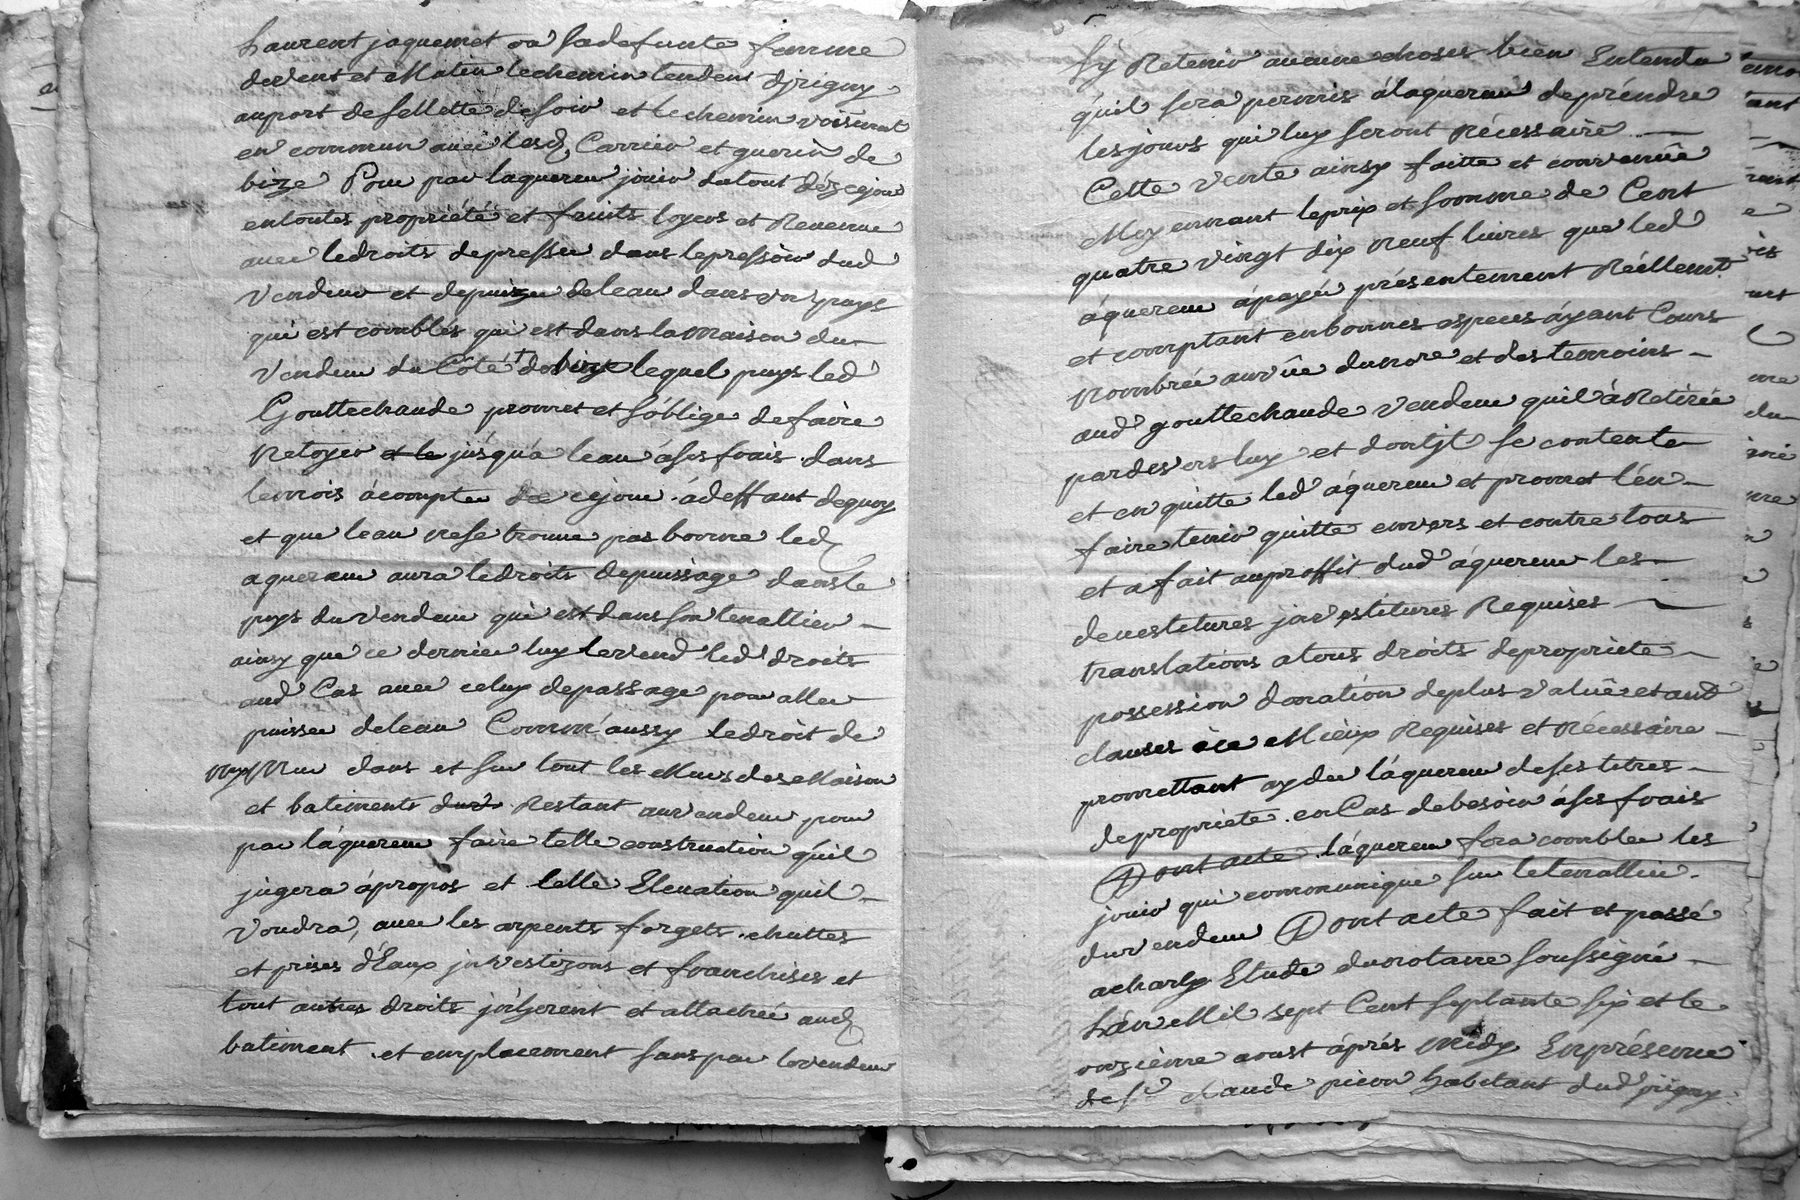 Laurent jaquemet ou sa defunte femme
de vent et Matin le chemin tendent djrigny
au port de fellette de soir et le chemin voisinent
en commun avec lesd Carrier et querin de
bize Pour par laquereur jouir du tout déz cejour
en toutes propriété et fruits loyers et Revenue
avec le droits de presser dans le pressoir dud
vendeur et de puizer de leau dans un puys
qui est comblés qui est dans la maison du
vendeur du Côté de bize lequel puys led
Gouttechaude promet et s'oblige de faire
Netoyer et le jusqu'a leau á ses frais dans
le mois á compter de cejour á deffaut de quoy
et que leau ne se trouve pas bonne led
aquereur aura le droits de puissage dans le
puys du vendeur qui est dans son tenallier
ainsy que ce dernier luy le vend led droits
aud Cas avec celuy de passage pour aller
puisser de leau Comm'aussy le droit de
dans et sur tout les Murs des Maison
et batiments dud Restant au vendeur pour
par láquereur faire telle construction quil
jugera á propos et telle Elevation quil
voudra, avec les arpents forgets chuttes
et prises d'Eaux jnvestizons et franchises et
tout autres droits jnhérent et attachée aud
batiment et emplacement sans par le vendeur
sÿ Retenir aucune choses bien Entendu
quil sera permis á laquereur de préndre
les jours qui luy seront Nécessaire
Cette vente ainsy faitte et convenüe
Moyennant le prix et somme de Cent
quatre vingt dix neuf livres que led
áquereur á payé présentement Réellemt
et comptant en bonnes especes áyant Cours
Nombrée au vüe du nore et des temoins
aud gouttechaude vendeur quil á Retirée
par devers luy et dont jl se contente
et en quitte led áquereur et promet l'en
faire tenir quitte envers et contre tous
et a fait au proffit dud áquereur les
devestitures jnvestitures Requises
translations a tous droits de propriete
possession donation de plus valüe et aud
clauses á ce Mieux Requises et Nécessaire
promettant ayder láquereur de ses titres
de propriete en Cas de besoin á ses frais
Dont acte láquereur fera combler les
jouir qui communique sur le tenallier
du vendeur Dont acte fait et passé
a charly Etude du notaire soussigné
L'án Mil sept Cent septante six et le
onzième aoust áprés Midy En présence
de sr claude pieron habitant dud jrigny